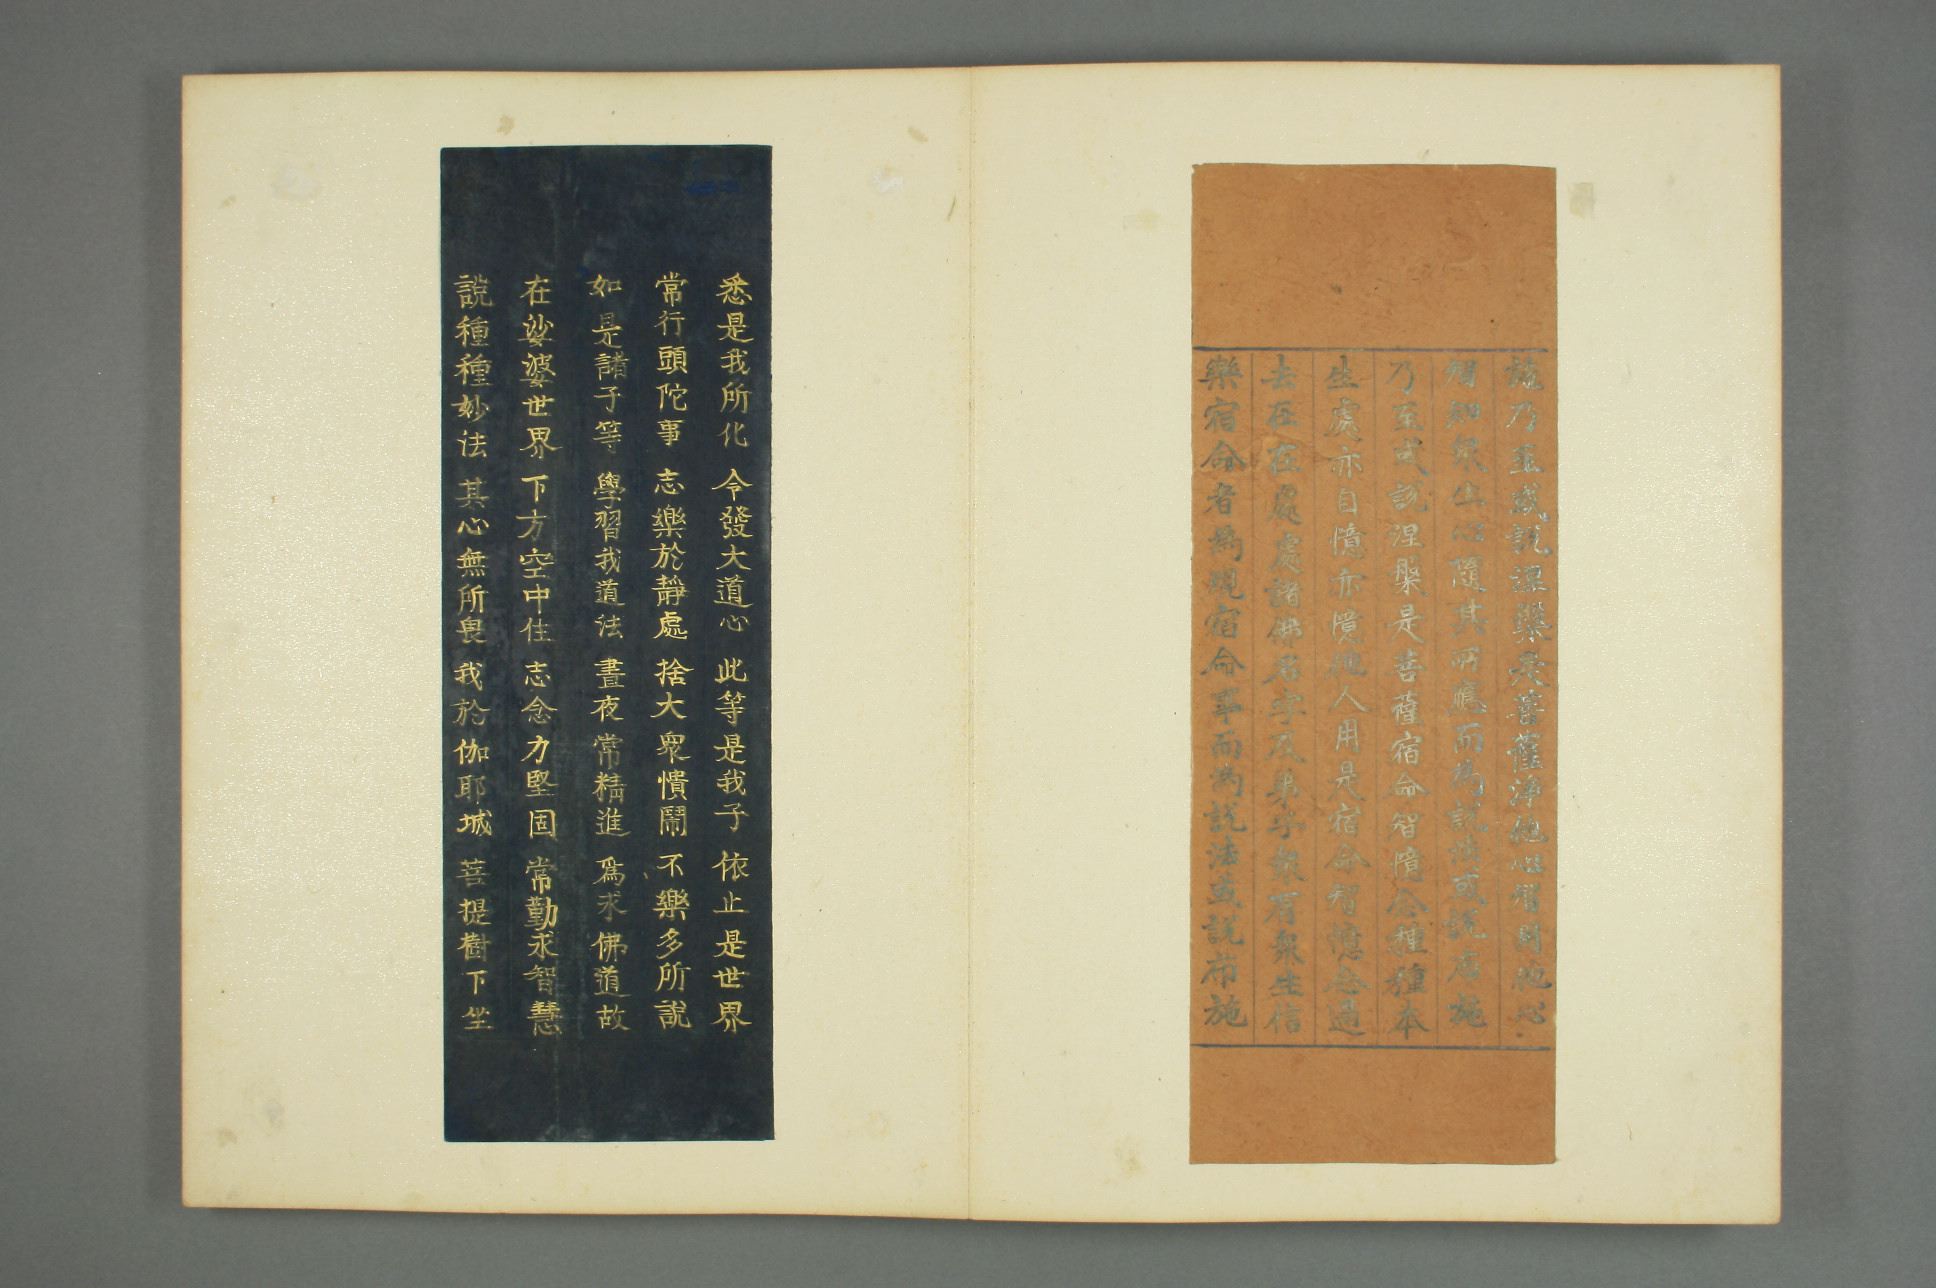 說乃至或說涅槃是菩薩淨他心智用他心
智知眾生心隨其所應而為說法或說布施
乃至或說涅槃是菩薩宿命智憶念種種本
生處亦自憶亦憶他人用是宿命智憶念過
去在在處處諸佛名字及弟子眾有眾生信
樂宿命者為現宿命事而為說法或說布施
悉是我所化 令發大道心 此等是我子 依止是世界
常行頭陀事 志樂於靜處 捨大眾憒鬧 不樂多所說
如是諸子等 學習我道法 晝夜常精進 爲求佛道故
在娑婆世界 下方空中住 志念力堅固 常勤求智慧
說種種妙法 其心無所畏 我於伽耶城 菩提樹下坐